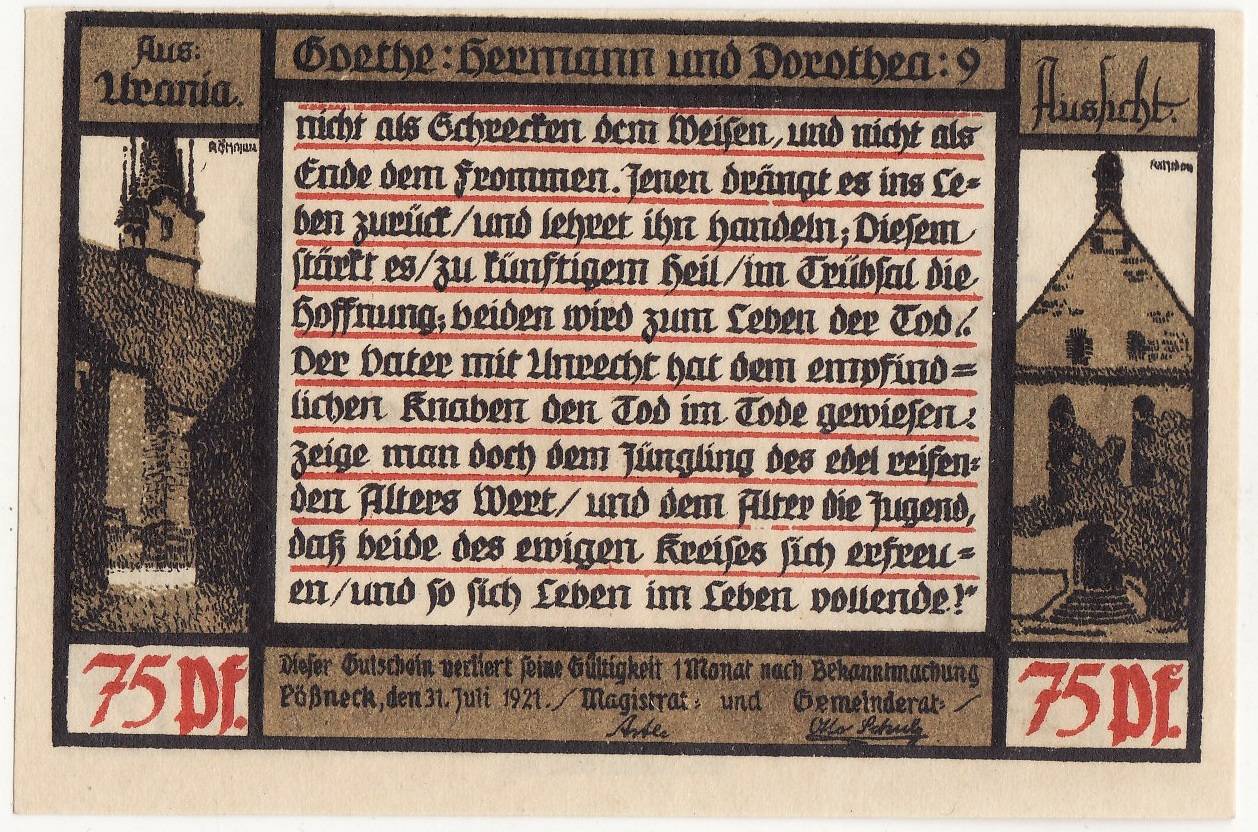 Aus:
Urania.
Goethe: Hermann und Dorothea: 9
Aussicht.
nicht als Schrecken dem Weisen, und nicht als
Ende dem Frommen. Jenen drängt es ins Le=
ben zurück/und lehret ihn handeln; Diesem
stärkt es/zu künftigem Heil/im Trübsal die
Hoffnung; beiden wird zum Leben der Tod/.
Der Vater mit Unrecht hat dem empfind=
lichen Knaben den Tod im Tode gewiesen.
Zeige man doch dem Jüngling des edel reifen=
den Alters Wert/ und dem Alter die Jugend,
daß beide des ewigen Kreises sich erfreu=
en/und so sich Leben im Leben vollende!"
75 Pf.
Dieser Gutschein verliert seine Gültigkeit 1 Monat nach Bekanntmachung
Pößneck, den 31. Juli 1921./ Magistrat= und Gemeinderat= /
Otto Schulz
75 Pf.